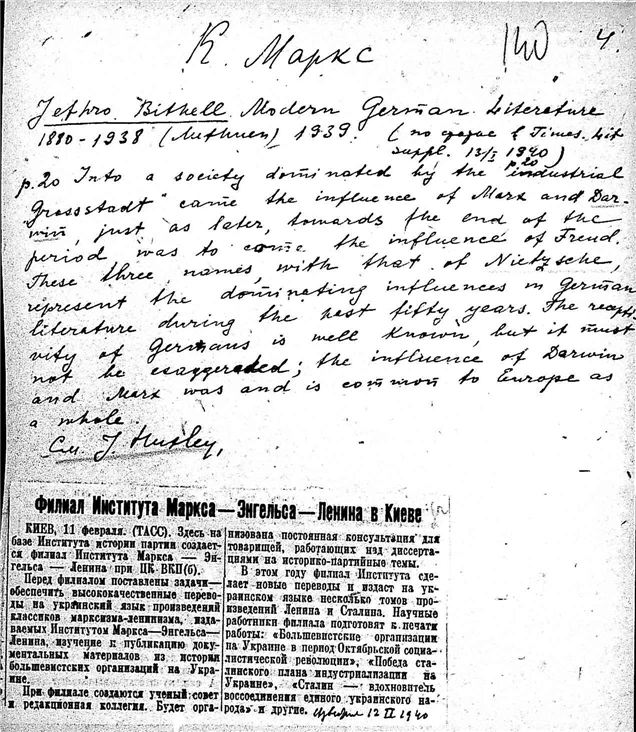 К. Маркс
140
4.
Jethro Bithell Modern German Literature
1880-1938 (Methuen) 1939. (
Times. Lit
suppl. 13/I 1940)
p.20
p.20 Into a society dominated by the "industrial
Grossstadt" came the influence of Marx and Dar-
win, just as later, towards the end of the
period was to come the influence of Freud.
These three names, with that of Nietzsche,
represent the dominating influences in German
literature during the past fifty years. The recepti-
vity of Germans is well known, but it must
not be exaggerated; the influence of Darwin
and Marx was and is common to Europe as
a whole.
См. J. Huxley,
Филиал Института Маркса—Энгельса—Ленина в Киеве
КИЕВ, 11 февраля. (ТАСС). Здесь на
базе Института истории партии создает-
ся филиал Института Маркса — Эн-
гельса — Ленина при ЦК ВКП(б).
Перед филиалом поставлены задачи—
обеспечить высококачественные перево-
ды на украинский язык произведений
классиков марксизма-ленинизма, изда-
ваемых Институтом Маркса—Энгельса—
Ленина, изучение к публикацию доку-
ментальных материалов из истории
большевистских организаций на Укра-
ине.
При филиале создаются ученый совет
и редакционная коллегия. Будет орга-
низована постоянная консультация для
товарищей, работающих над диссерта-
циями на историко-партийные темы.
В этом году филиал Института сде-
лает новые переводы и издаст на ук-
раинском языке несколько томов про-
изведений Ленина и Сталина. Научные
работники филиала подготовят к печати
работы: «Большевистские организации
на Украине в период Октябрьской социа-
листической революции», «Победа ста-
линского плана индустриализации на
Украине», «Сталин — вдохновитель
воссоединения единого украинского на-
рода» и другие. Известия 12 II 1940